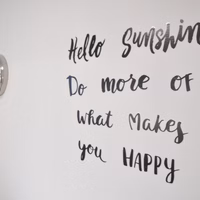 Hello Sunshin
Do more of
what makes
you HAPPY